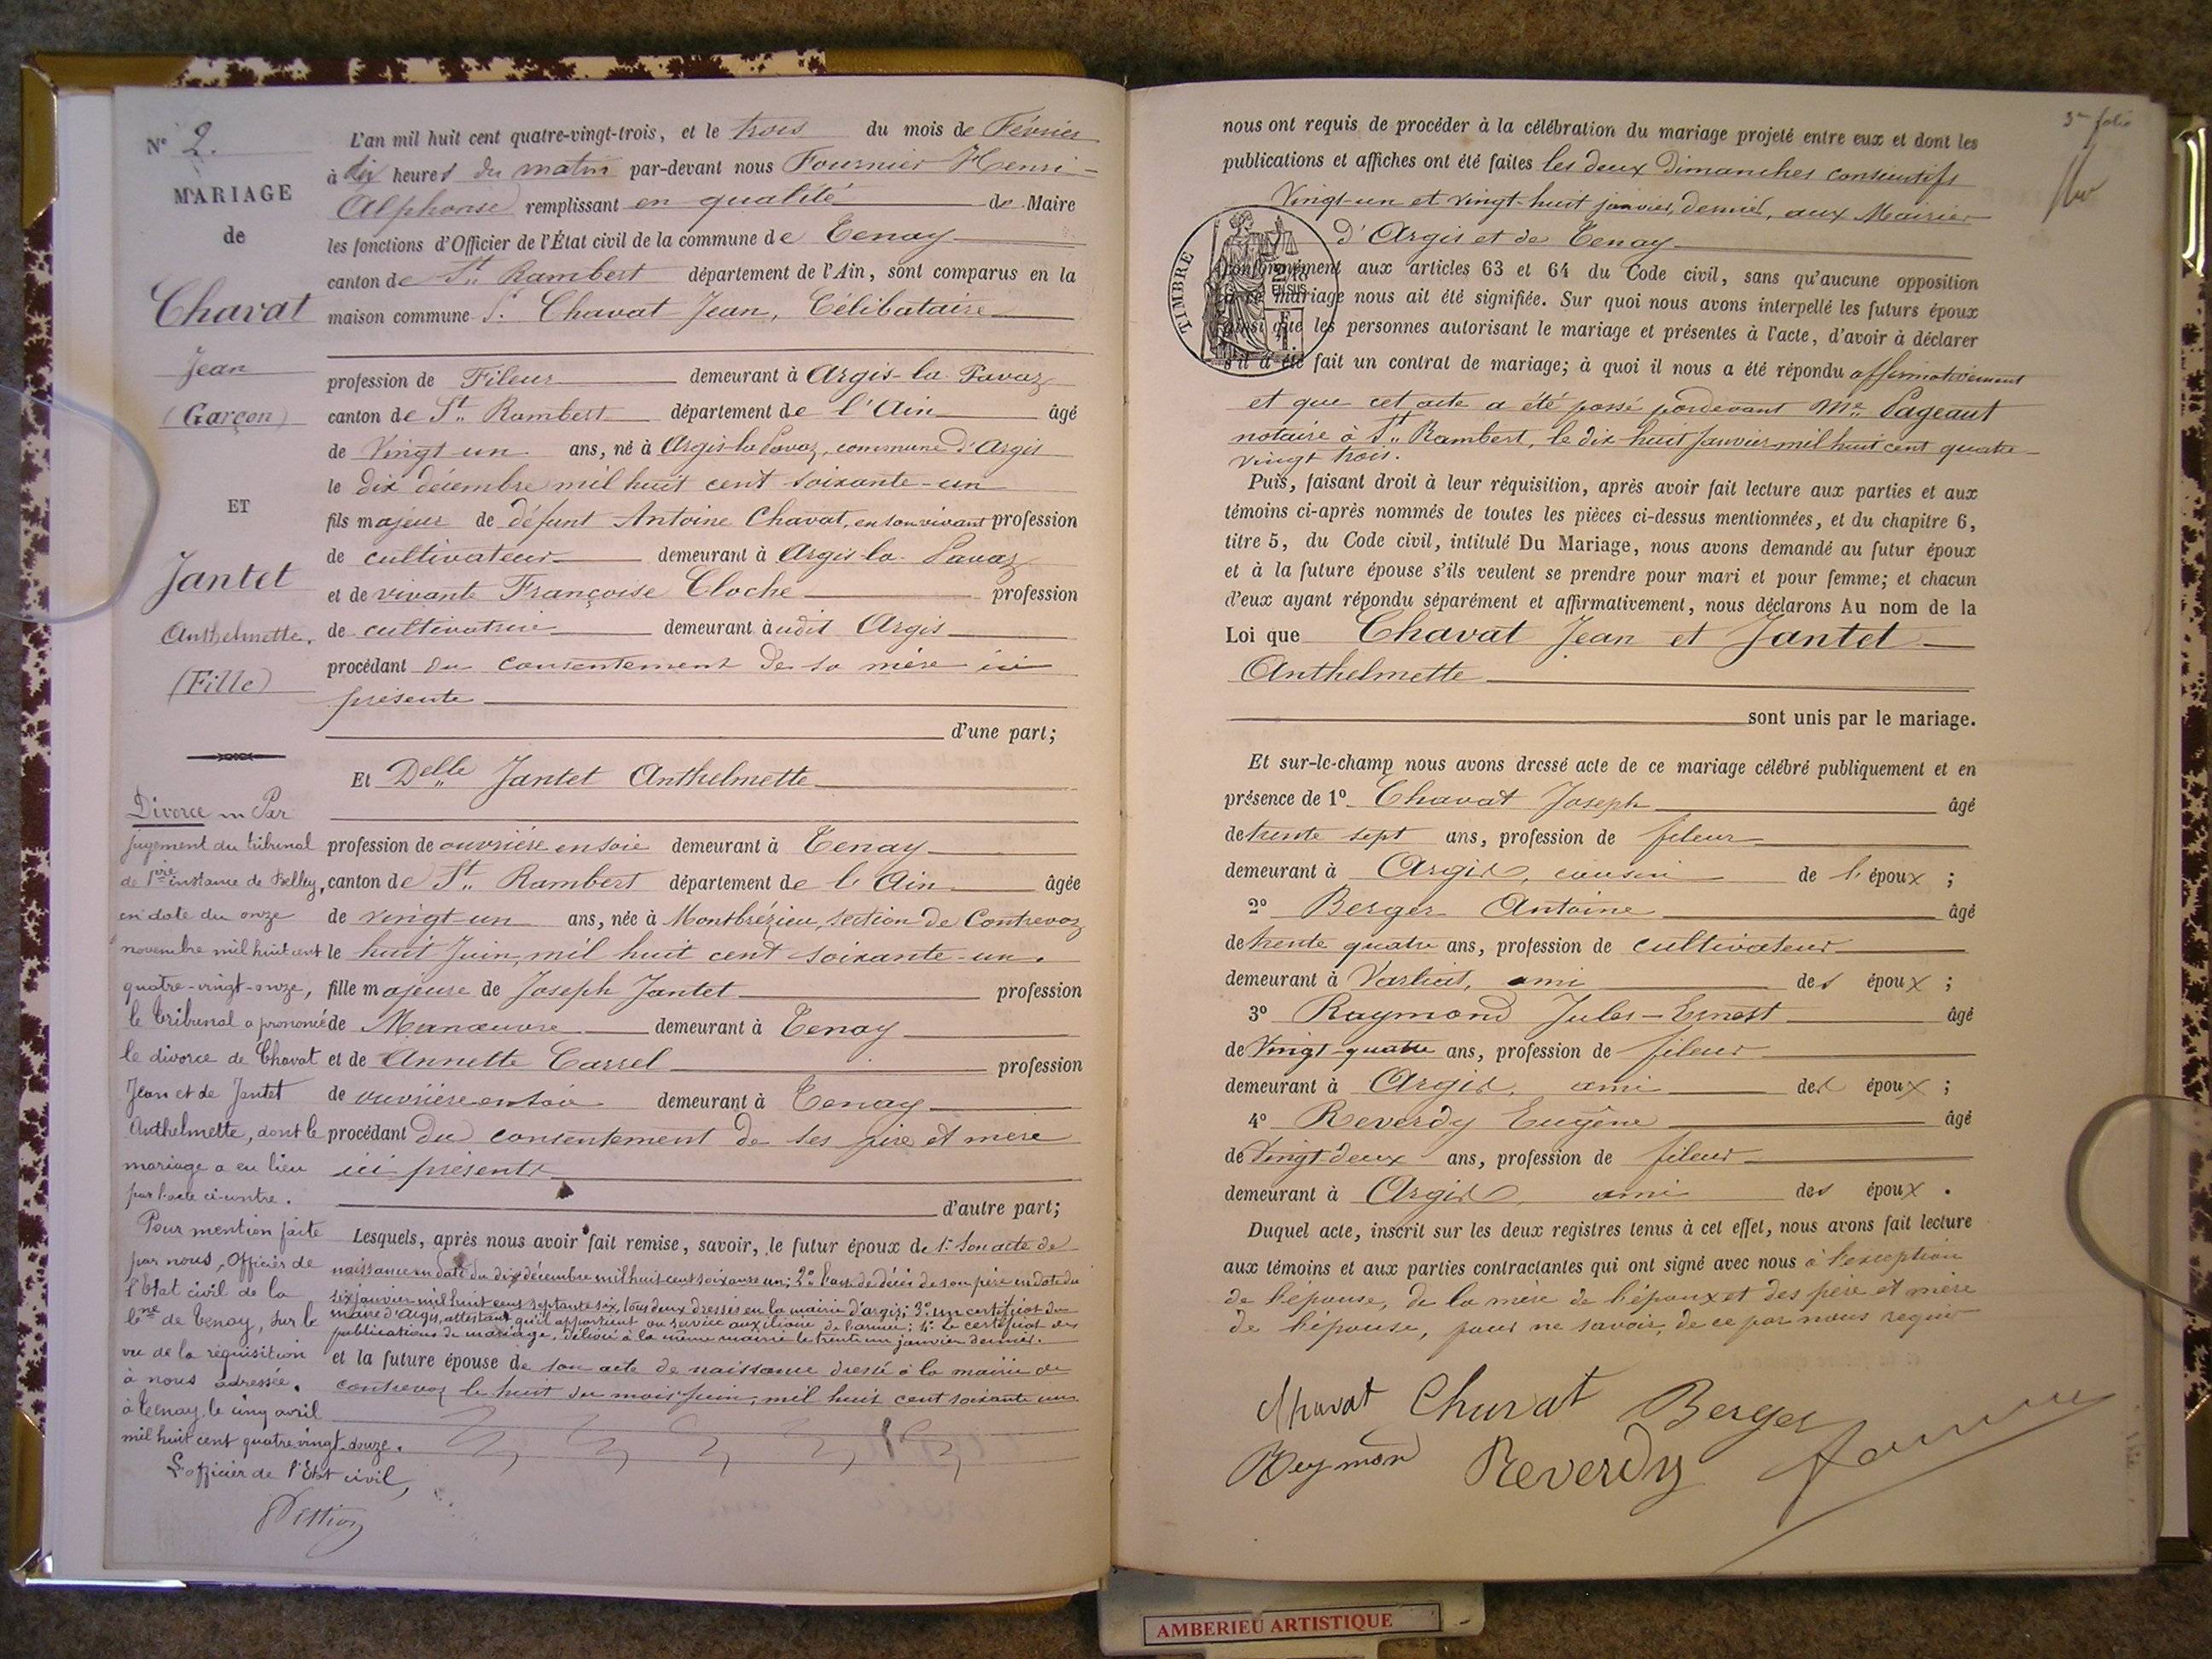 N° 2.
MARIAGE
de
Chavat
Jean
(Garçon)
ET
Jantet
Anthelmette.
(Fille)
Divorce Par
jugement du tribunal
de 1ère instance de Belley,
en date du onze
novembre mil huit cent
quatre-vingt-onze,
le tribunal a prononcé
le divorce de Chavat
Jean et de Jantet
Anthelmette, dont le
mariage a eu lieu
par l'acte ci-contre.
Pour mention faite
par nous, Officier de
l'État civil de la
Cne de Tenay, sur le
vu de la réquisition
à nous adressée.
à Tenay, le cinq avril
mil huit cent quatre vingt-douze.
L'officier de l'État civil,
L'an mil huit cent quatre-vingt-trois, et le trois du mois de Février
à dix heures du matin par-devant nous Fournier Henri-
Alphonse remplissant en qualité de Maire
les fonctions d'Officier de l'État civil de la commune de Tenay
canton de St. Rambert département de l'Ain, sont comparus en la
maison commune Sr. Chavat Jean, Célibataire
profession de Fileur demeurant à Argis-la-Pavaz
canton de St. Rambert département de l'Ain âgé
de Vingt un ans, né à Argis-la Pavaz, commune d'Argis
le dix décembre mil huit cent soixante-un
fils majeur de défunt Antoine Chavat, en son vivant profession
de cultivateur demeurant à Argis-la-Pavaz
et de vivante Françoise Cloche profession
de cultivatrice demeurant audit Argis
procédant du consentement de sa mère ici
présente
d'une part;
Et Delle Jantet Anthelmette
profession de ouvrière en soie demeurant à Tenay
canton de St. Rambert département de l'Ain âgée
de vingt-un ans, née à Montbrézieu, section de Contrevoz
le huit Juin, mil huit cent soixante-un.
fille majeure de Joseph Jantet profession
de Manœuvre demeurant à Tenay
et de Annette Carrel profession
de ouvrière en soie demeurant à Tenay
procédant du consentement de ses père et mère
ici présents
d'autre part;
Lesquels, après nous avoir fait remise, savoir, le futur époux de 1° Son acte de
naissance en date du dix décembre mil huit cent soixante un; 2° l'acte de décès de son père en date du
six janvier mil huit cent septante six, tous deux dressés en la mairie d'argis; 3° un certificat du
maire d'Argis, attestant qu'il appartient au service auxiliaire de l'armée; 4° Le certificat des
publications de mariage, délivré à la même mairie le trente un janvier dernier.
et la future épouse de son acte de naissance dressé à la mairie de
contrevoz le huit du mois Juin, mil huit cent soixante un
3me folio
nous ont requis de procéder à la célébration du mariage projeté entre eux et dont les
publications et affiches ont été faites les deux Dimanches consécutifs
Vingt-un et vingt-huit janvier, dernier, aux Mairies
d'Argis et de Tenay
TIMBRE
EN SUS
conformément aux articles 63 et 64 du Code civil, sans qu'aucune opposition
à ce mariage nous ait été signifiée. Sur quoi nous avons interpellé les futurs époux
ainsi que les personnes autorisant le mariage et présentes à l'acte, d'avoir à déclarer
s'il a été fait un contrat de mariage; à quoi il nous a été répondu affirmativement
et que cet acte a été passé pardevant Me Pageaut
notaire à St. Rambert, le dix-huit Janvier mil huit cent quatre-
vingt trois.
Puis, faisant droit à leur réquisition, après avoir fait lecture aux parties et aux
témoins ci-après nommés de toutes les pièces ci-dessus mentionnées, et du chapitre 6,
titre 5, du Code civil, intitulé Du Mariage, nous avons demandé au futur époux
et à la future épouse s'ils veulent se prendre pour mari et pour femme; et chacun
d'eux ayant répondu séparément et affirmativement, nous déclarons Au nom de la
Loi que Chavat Jean et Jantet
Anthelmette
sont unis par le mariage.
Et sur-le-champ nous avons dressé acte de ce mariage célébré publiquement et en
présence de 1° Chavat Joseph âgé
de trente sept ans, profession de fileur
demeurant à Argis, cousin de l'époux ;
2° Berger Antoine âgé
de trente quatre ans, profession de cultivateur
demeurant à ami des époux ;
3° Raymond Jules-Ernest âgé
de Vingt-quatre ans, profession de fileur
demeurant à Argis, ami des époux ;
4° Reverdy Eugène âgé
de Vingt-deux ans, profession de fileur
demeurant à Argis, ami des époux .
Duquel acte, inscrit sur les deux registres tenus à cet effet, nous avons fait lecture
aux témoins et aux parties contractantes qui ont signé avec nous à l'exception
de l'épouse, de la mère de l'époux et des père et mère
de l'épouse, pour ne savoir, de ce par nous requis
Chavat Chavat Berger
Reymond Reverdy
AMBERIEU ARTISTIQUE